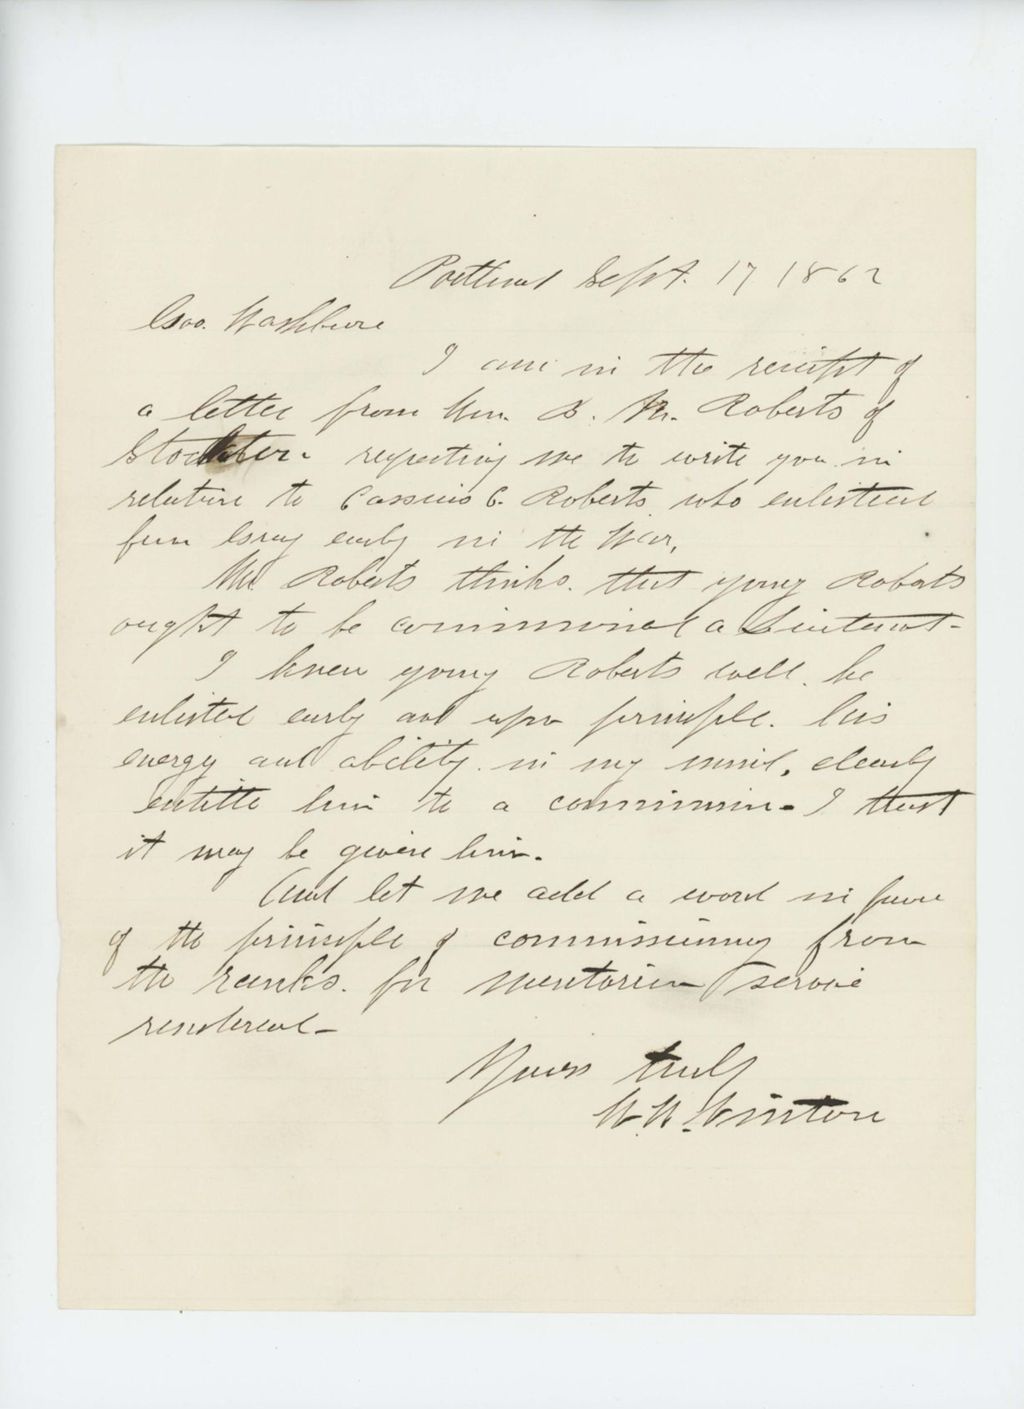 Portland Sept. 17 1862
Gov. Washburn
I am in the receipt of
a letter from Hon. B. M. Roberts of
Stockton requesting me to write you in
relation to Cassius C. Roberts who enlisted
from Gray early in the War,
Mr Roberts thinks that young Roberts
ought to be commissioned a Lieutenant-
I knew young Roberts well. he
enlisted early and upon principle. his
energy and ability in my mind, clearly
entitle him to a commission- I trust
it may be given him.
And let me add a word in favor
of the principle of commissioning from
the ranks. for meritorious service
rendered-
Yours truly
W. W. Virgin